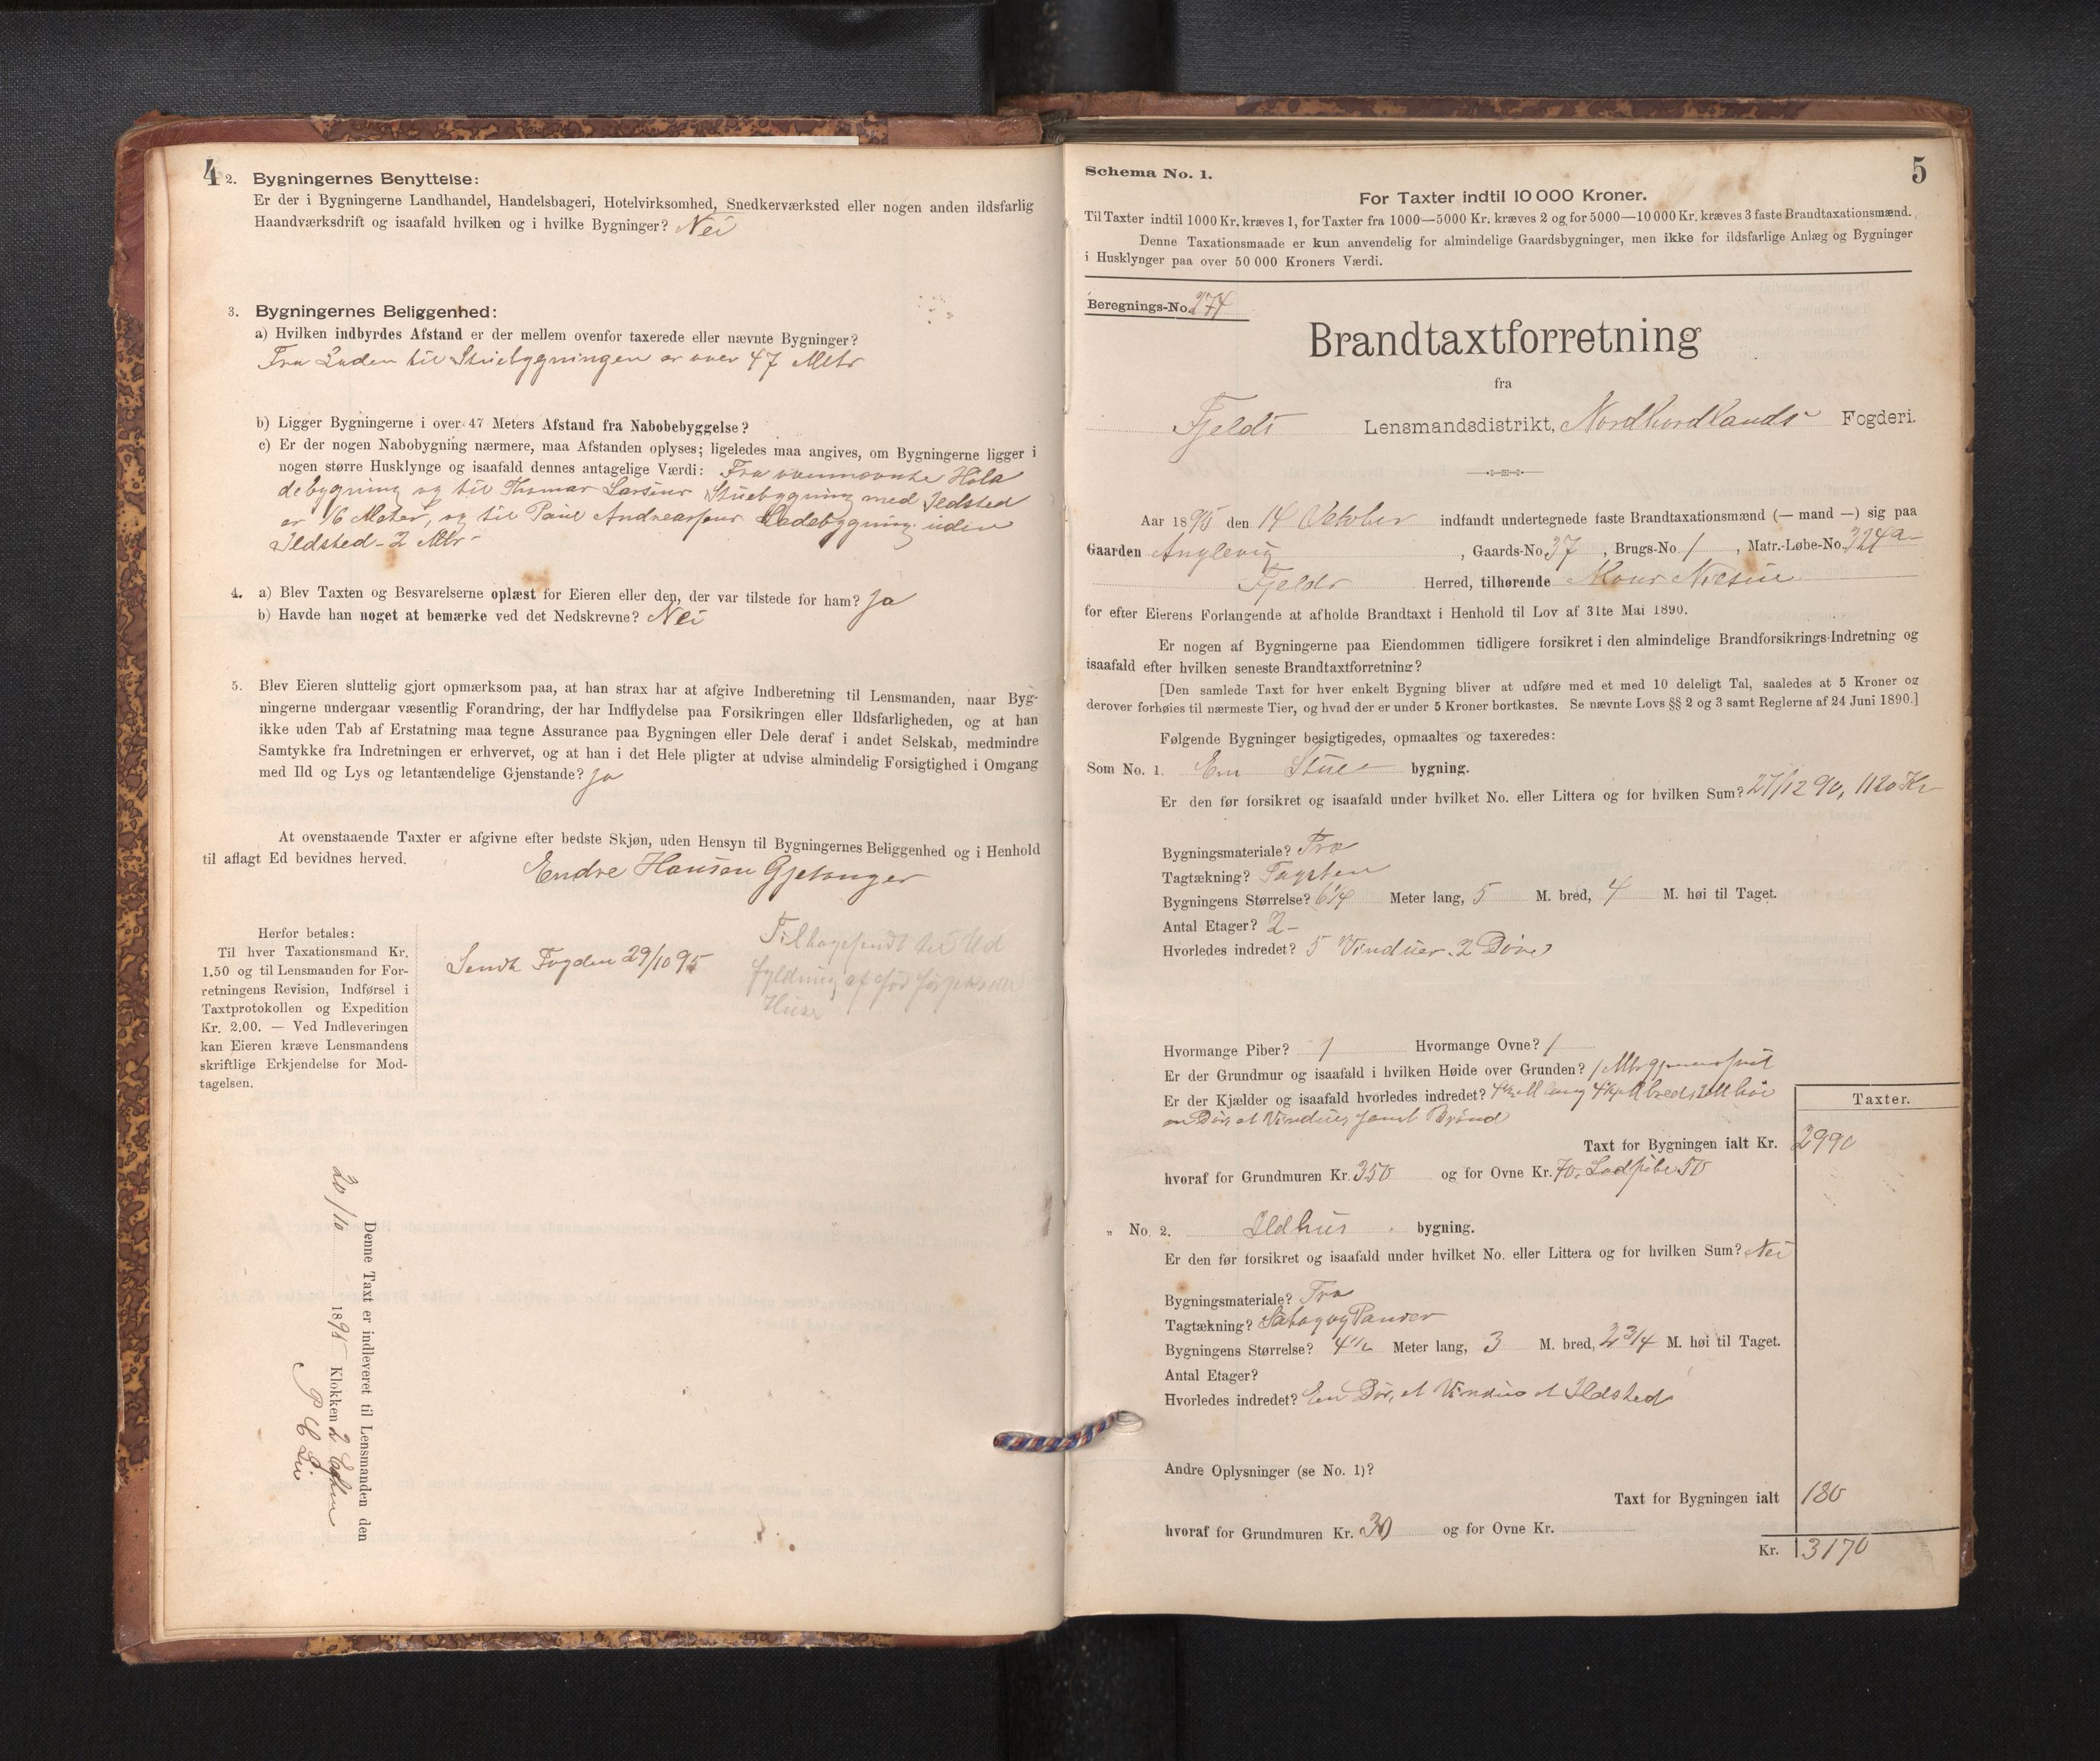 4
2. Bygningernes Benyttelse:
Er der i Bygningerne Landhandel, Handelsbageri, Hotelvirksomhed, Snedkerværksted eller nogen anden ildsfarlig
Haandværksdrift og isaafald hvilken og i hvilke Bygninger? Nei
3. Bygningernes Beliggenhed:
a) Hvilken indbyrdes Afstand er der mellem ovenfor taxerede eller nævnte Bygninger?
Fra Laden til Stuebygningen er over 47 Mtr
b) Ligger Bygningerne i over 47 Meters Afstand fra Nabobebyggelse?
c) Er der nogen Nabobygning nærmere, maa Afstanden oplyses; ligeledes maa angives, om Bygningerne ligger i
nogen større Husklynge og isaafald dennes antagelige Værdi: Fra ovennævnte Höla
debygning og til Thomas Larsens Stuebygning med Ildsted
er 16 Meter, og til Paul Andreassens Ladebygning uden
Ildsted - 2 Mtr -
4. a) Blev Taxten og Besvarelserne oplæst for Eieren eller den, der var tilstede for ham? Ja
b) Havde han noget at bemærke ved det Nedskrevne? Nei
5. Blev Eieren sluttelig gjort opmærksom paa, at han strax har at afgive Indberetning til Lensmanden, naar Byg-
ningerne undergaar væsentlig Forandring, der har Indflydelse paa Forsikringen eller Ildsfarligheden, og at han
ikke uden Tab af Erstatning maa tegne Assurance paa Bygningen eller Dele deraf i andet Selskab, medmindre
Samtykke fra Indretningen er erhvervet, og at han i det Hele pligter at udvise almindelig Forsigtighed i Omgang
med Ild og Lys og letantændelige Gjenstande? Ja
At ovenstaaende Taxter er afgivne efter bedste Skjøn, uden Hensyn til Bygningernes Beliggenhed og i Henhold
til aflagt Ed bevidnes herved.
Endre Hansen Gjetanger
Herfor betales:
Til hver Taxationsmand Kr.
1.50 og til Lensmanden for For-
retningens Revision, Indførsel i
Taxtprotokollen og Expedition
Kr. 2.00. — Ved Indleveringen
kan Eieren kræve Lensmandens
skriftlige Erkjendelse for Mod-
tagelsen.
Sendt Fogden 29/10 95
Tilbagesendt til Ud
fyldning af før
Huse
Denne Taxt er indleveret til Lensmanden den
20/10 1895 Klokken 2 Efterm
P C Lie
5
Schema No. 1.
For Taxter indtil 10 000 Kroner.
Til Taxter indtil 1000 Kr. kræves 1, for Taxter fra 1000—5000 Kr. kræves 2 og for 5000—10 000 Kr. kræves 3 faste Brandtaxationsmænd.
Denne Taxationsmaade er kun anvendelig for almindelige Gaardsbygninger, men ikke for ildsfarlige Anlæg og Bygninger
i Husklynger paa over 50 000 Kroners Værdi.
Beregnings-No. 274
Brandtaxtforretning
fra
Fjelds Lensmandsdistrikt, Nordhordlands Fogderi.
Aar 1895 den 14 Oktober indfandt undertegnede faste Brandtaxationsmænd (— mand —) sig paa
Gaarden Anglevig, Gaards-No. 37, Brugs-No. 1, Matr.-Løbe-No. 324a-
Fjelds Herred, tilhørende Mons Nilsen
for efter Eierens Forlangende at afholde Brandtaxt i Henhold til Lov af 31te Mai 1890.
Er nogen af Bygningerne paa Eiendommen tidligere forsikret i den almindelige Brandforsikrings-Indretning og
isaafald efter hvilken seneste Brandtaxtforretning?
[Den samlede Taxt for hver enkelt Bygning bliver at udføre med et med 10 deleligt Tal, saaledes at 5 Kroner og
derover forhøies til nærmeste Tier, og hvad der er under 5 Kroner bortkastes. Se nævnte Lovs §§ 2 og 3 samt Reglerne af 24 Juni 1890.]
Følgende Bygninger besigtigedes, opmaaltes og taxeredes:
Som No. 1. En Stue bygning.
Er den før forsikret og isaafald under hvilket No. eller Littera og for hvilken Sum? 27/12 90, 1120 Kr
Bygningsmateriale? Træ
Tagtækning? Tagsten
Bygningens Størrelse? 6 1/4 Meter lang, 5 M. bred, 4 M. høi til Taget.
Antal Etager? 2 -
Hvorledes indredet? 5 Vinduer. 2 Døre
Hvormange Piber? 1 Hvormange Ovne? 1
Er der Grundmur og isaafald i hvilken Høide over Grunden? 1 Mtr gjennemsnit
Er der Kjælder og isaafald hvorledes indredet? 4 1/2 M lang 4 1/4 M bred 2 M høi
en Dør, et Vindue, samt Brønd
Taxter.
Taxt for Bygningen ialt Kr. 2990
hvoraf for Grundmuren Kr. 350 og for Ovne Kr. 70. Ladpibe 50
„ No. 2. Ildhus bygning.
Er den før forsikret og isaafald under hvilket No. eller Littera og for hvilken Sum? Nei
Bygningsmateriale? Træ
Tagtækning?
Bygningens Størrelse? 4 1/2 Meter lang, 3 M. bred, 2 3/4 M. høi til Taget.
Antal Etager?
Hvorledes indredet? En Dør, et Vindue et Ildsted
Andre Oplysninger (se No. 1)?
Taxt for Bygningen ialt 180
hvoraf for Grundmuren Kr. 30 og for Ovne Kr.
Kr. 3170